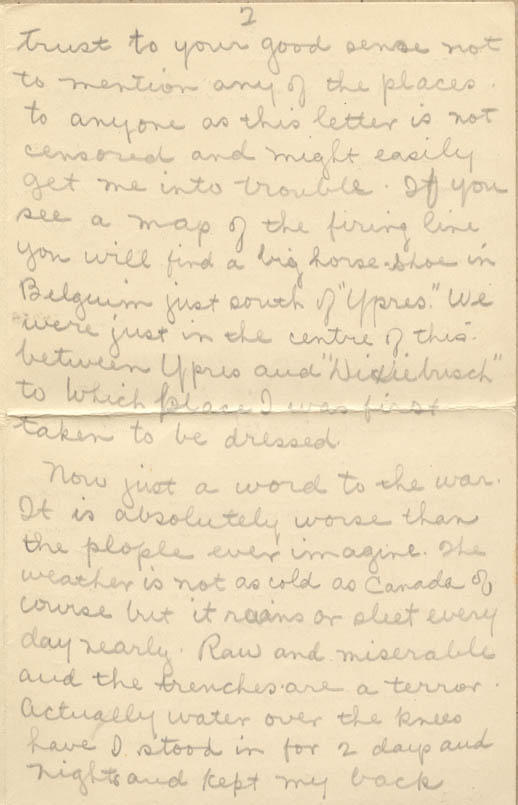 2
trust to your good sense not
to mention any of the places
to anyone as this letter is not
censored and might easily
get me into trouble. If you
see a map of the firing line
you will find a big horse-shoe in
Belguim just south of "Ypres." We
were just in the centre of this
between Ypres and "Dixiebusch"
to which place I was first
taken to be dressed.
Now just a word to the war.
It is absolutely worse than
the plople ever imagine. The
weather is not as cold as Canada of
course but it rains or sleet every
day nearly. Raw and miserable
and the trenches are a terror.
Actually water over the knees
have I stood in for 2 days and
nights and kept my back